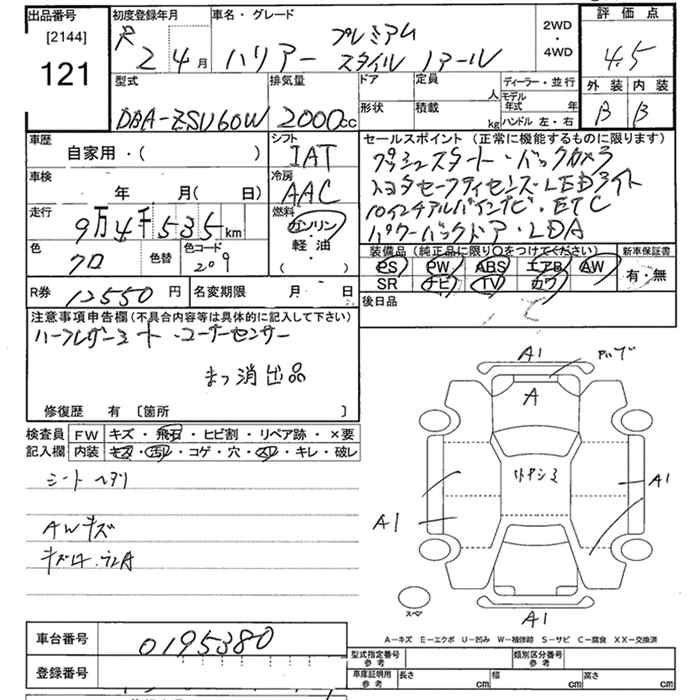 出品番号
[2144]
121
初度登録年月
R 2 4 月
車名・グレード
ハリアー プレミアム
スタイル ノアール
2WD
・
4WD
評価点
4.5
外装 内装
B B
型式
DBA-ZSU60W
排気量
2000cc
ドア 定員 人
形状 積載 kg
ディーラー・並行
モデル年式 年
ハンドル 左・右
車歴
自家用・( )
シフト
IAT
車検
年 月( 日)
冷房
AAC
走行
9万4千535km
燃料
ガソリン
軽油
( )
色
クロ
色替
色コード
209
セールスポイント(正常に機能するものに限ります)
プッシュスタート・バックカメラ
トヨタセーフティセンス・LEDライト
10インチアルパインナビ・ETC
パワーバックドア・LDA
装備品(純正品に限り○をつけてください)
PS PW ABS エアB AW
SR ナビ TV カワ
新車保証書
有・無
後日品
R券 12550円
名変期限 月 日
注意事項申告欄(不具合内容等は具体的に記入して下さい)
ハーフレザーシート・コーナーセンサー
まっ消出品
修復歴 有 〔箇所 〕
検査員
記入欄
FW キズ・飛石・ヒビ割・リペア跡・×要
内装 キズ・汚れ・コゲ・穴・スレ・キレ・破レ
シートヘタリ
AWキズ
A1
A
A1
A1
A1
スペア
A-キズ E-エクボ U-凹み W-補修跡 S-サビ C-腐食 XX-交換済
車台番号
0195380
登録番号
型式指定番号
参考
類別区分番号
参考
車庫証明用
参考
長さ cm 幅 cm 高さ cm